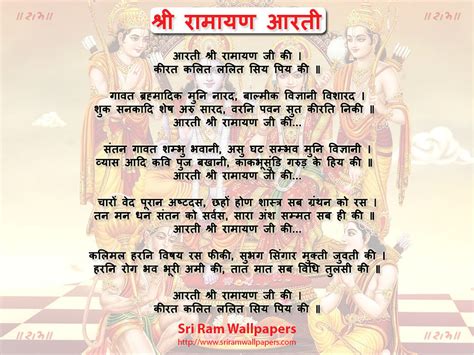 श्री रामायण आरती
॥राम॥
॥राम॥
आरती श्री रामायण जी की ।
कीरत कलित ललित सिय पिय की ॥
गावत ब्रह्मादिक मुनि नारद, बाल्मीक विज्ञानी विशारद ।
शुक सनकादि शेष अरु सारद, वरनि पवन सुत कीरति निकी ॥
आरती श्री रामायण जी की...
संतन गावत शम्भु भवानी, असु घट सम्भव मुनि विज्ञानी ।
व्यास आदि कवि पुंज बखानी, काकभूसुंडि गरुड़ के हिय की ॥
आरती श्री रामायण जी की...
चारों वेद पूरान अष्टदस, छहों होण शास्त्र सब ग्रंथन को रस ।
तन मन धन संतन को सर्वस, सारा अंश सम्मत सब ही की ॥
आरती श्री रामायण जी की...
कलिमल हरनि विषय रस फीकी, सुभग सिंगार मुक्ती जुवती की ।
हरनि रोग भव भूरी अमी की, तात मात सब विधि तुलसी की ॥
आरती श्री रामायण जी की ।
कीरत कलित ललित सिय पिय की ॥
॥राम॥
॥राम॥
Sri Ram Wallpapers
http://www.sriramwallpapers.com